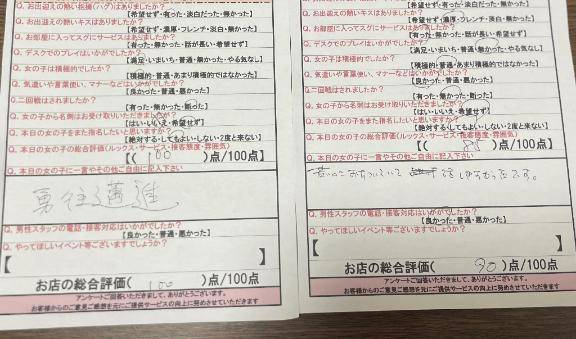 Q. お出迎えの熱い抱擁(ハグ)はありましたか?
【希望せず・有った・淡白だった・無かった】
Q. お出迎えの熱いキスはありましたか?
【希望せず・濃厚・フレンチ・淡白・無かった】
Q. お部屋に入ってスグにサービスはありましたか?
【有った・無かった・話が長い・希望せず】
Q. デスクでのプレイはいかがでしたか?
【満足・いまいち・普通・無かった・やる気なし】
Q. 女の子は積極的でしたか?
【積極的・普通・あまり積極的ではなかった】
Q. 気遣いや言葉使い、マナーなどはいかがでしたか?
【良かった・普通・悪かった】
Q. 二回戦はされましたか?
【有った・無かった・断った】
Q. 女の子から名刺はお受け取りいただきましたか?
【はい・いいえ・希望せず】
Q. 本日の女の子をまた指名したいと思いますか?
【絶対する・してもよい・しない・2度と来ない】
Q. 本日の女の子の総合評価(ルックス・サービス・接客態度・雰囲気)
【( 100 )点/100点】
Q. 本日の女の子に一言やその他ご自由に記入下さい
勇往邁進
Q. 男性スタッフの電話・接客対応はいかがでしたか?
【良かった・普通・悪かった】
Q. やってほしいイベント等ございますでしょうか?
【 】
お店の総合評価( 100 )点/100点
アンケートご回答いただきまして、ありがとうございます。
お客様からのご意見ご感想を元にご提供サービスの向上に努めさせていただきます
【希望せず・有った・淡白だった・無かった】
Q. お出迎えの熱いキスはありましたか?
【希望せず・濃厚・フレンチ・淡白・無かった】
Q. お部屋に入ってスグにサービスはありましたか?
【有った・無かった・話が長い・希望せず】
Q. デスクでのプレイはいかがでしたか?
【満足・いまいち・普通・無かった・やる気なし】
Q. 女の子は積極的でしたか?
【積極的・普通・あまり積極的ではなかった】
Q. 気遣いや言葉使い、マナーなどはいかがでしたか?
【良かった・普通・悪かった】
Q. 二回戦はされましたか?
【有った・無かった・断った】
Q. 女の子から名刺はお受け取りいただきましたか?
【はい・いいえ・希望せず】
Q. 本日の女の子をまた指名したいと思いますか?
【絶対する・してもよい・しない・2度と来ない】
Q. 本日の女の子の総合評価(ルックス・サービス・接客態度・雰囲気)
【( 85 )点/100点】
Q. 本日の女の子に一言やその他ご自由に記入下さい
Q. 男性スタッフの電話・接客対応はいかがでしたか?
【良かった・普通・悪かった】
Q. やってほしいイベント等ございますでしょうか?
【 】
お店の総合評価( 90 )点/100点
アンケートご回答いただきまして、ありがとうございます。
お客様からのご意見ご感想を元にご提供サービスの向上に努めさせていただきます